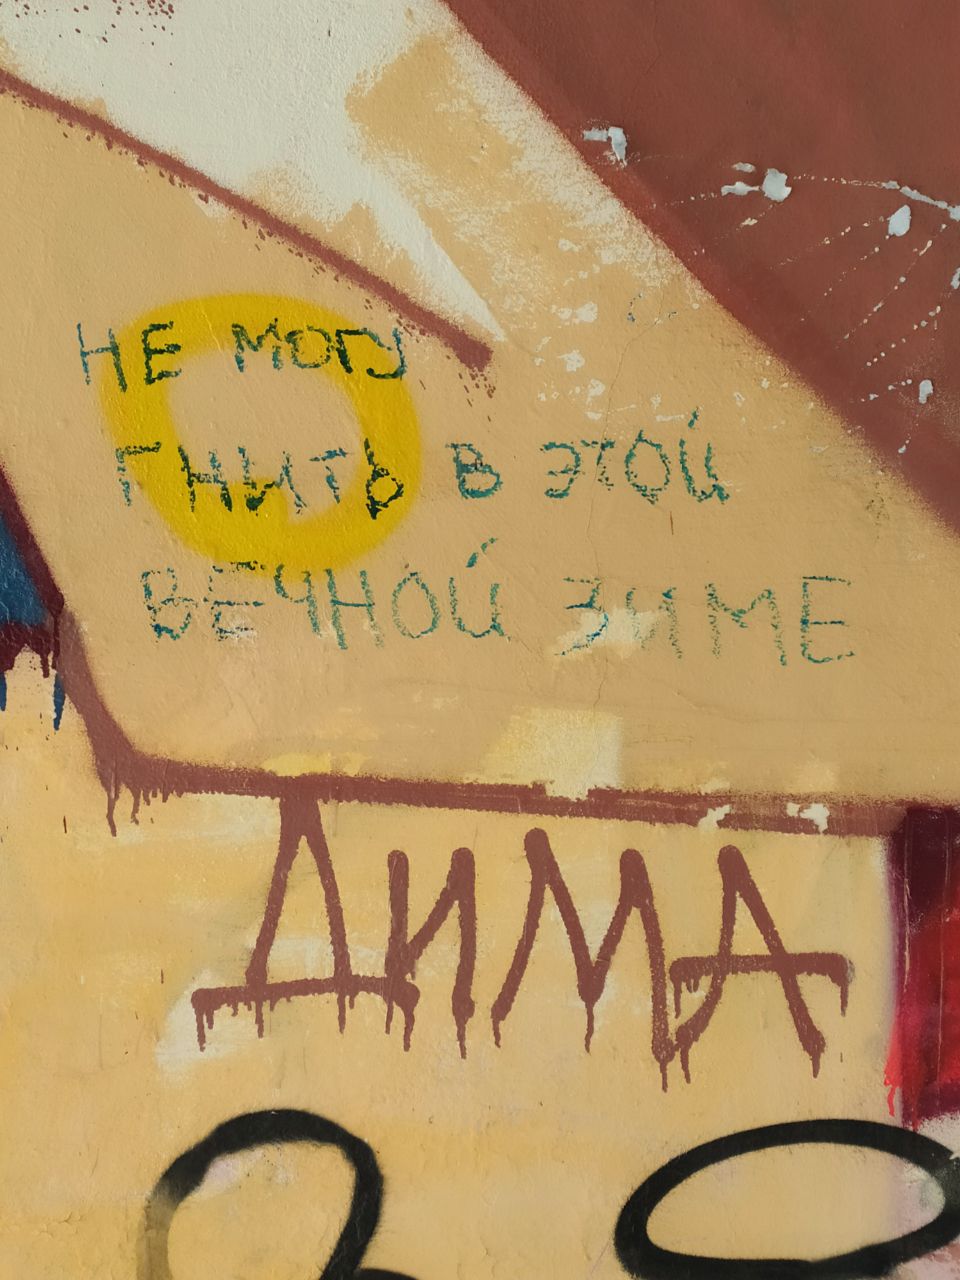 НЕ МОГУ
ГНИТЬ В ЭТОЙ
ВЕЧНОЙ ЗИМЕ
ДИМА